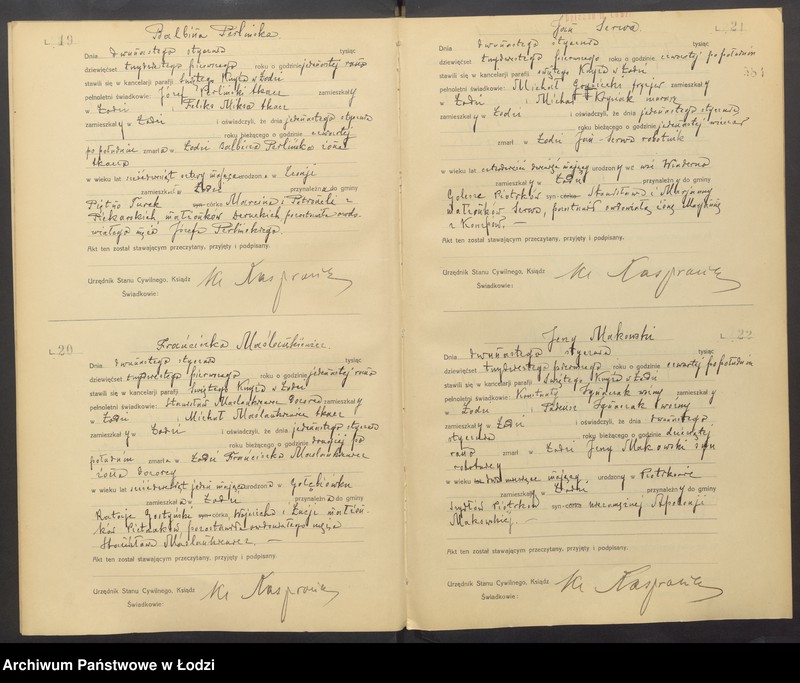 L. 19
Balbina Perlińska
Dnia dwunastego stycznia tysiąc
dziewięćset trzydziestego pierwszego roku o godzinie jedenastej rano
stawili się w kancelarji parafji Świętego Krzyża w Łodzi
pełnoletni świadkowie: Józef Perliński tkacz zamieszkały
w Łodzi i Feliks tkacz
zamieszkały w Łodzi i oświadczyli, że dnia jedenastego stycznia
roku bieżącego o godzinie czwartej
po południu zmarła w Łodzi Balbina Perlińska żona
tkacza
w wieku lat sześćdziesiąt cztery mająca urodzona w
zamieszkała w Łodzi przynależna do gminy
Turek syn-córka Marcina i Petroneli z
Piekarskich, małżonków pozostawiła owdo-
wiałego męża Józefa Perlińskiego.
Akt ten został stawającym przeczytany, przyjęty i podpisany.
Urzędnik Stanu Cywilnego, Ksiądz
Świadkowie:
L. 20
Franciszka Maślankiewicz
Dnia dwunastego stycznia tysiąc
dziewięćset trzydziestego pierwszego roku o godzinie jedenastej rano
stawili się w kancelarji parafji Świętego Krzyża w Łodzi
pełnoletni świadkowie: Stanisław Maślankiewicz dozorca zamieszkały
w Łodzi i Michał Maślankiewicz tkacz
zamieszkały w Łodzi i oświadczyli, że dnia jedenastego stycznia
roku bieżącego o godzinie drugiej po
południu zmarła w Łodzi Franciszka Maślankiewicz
żona dozorcy
w wieku lat sześćdziesiąt jeden mająca urodzona w
zamieszkała w Łodzi przynależna do gminy
Rataje Gostyński syn-córka Wojciecha i Łucji małżon-
ków Pietrzaków pozostawiła owdowiałego męża
Stanisława Maślankiewicz. —
Akt ten został stawającym przeczytany, przyjęty i podpisany.
Urzędnik Stanu Cywilnego, Ksiądz
Świadkowie:
L. 21
Jan Serwa.
Dnia dwunastego stycznia tysiąc
dziewięćset trzydziestego pierwszego roku o godzinie czwartej po południu
stawili się w kancelarji parafji Świętego Krzyża w Łodzi
pełnoletni świadkowie: Michał zamieszkały
w Łodzi i Michał murarz
zamieszkały w Łodzi i oświadczyli, że dnia jedenastego stycznia
roku bieżącego o godzinie jedenastej wieczór
zmarł w Łodzi Jan Serwa robotnik
w wieku lat czterdzieści dwa mający urodzony we wsi
zamieszkały w Łodzi przynależny do gminy
Piotrków syn-córka Stanisława i Marjanny
małżonków Serwa, pozostawił owdowiałą żonę
z —
Akt ten został stawającym przeczytany, przyjęty i podpisany.
Urzędnik Stanu Cywilnego, Ksiądz
Świadkowie:
L. 22
Jerzy Makowski
Dnia dwunastego stycznia tysiąc
dziewięćset trzydziestego pierwszego roku o godzinie czwartej po południu
stawili się w kancelarji parafji Świętego Krzyża w Łodzi
pełnoletni świadkowie: Konstanty woźny zamieszkały
w Łodzi i Tadeusz woźny
zamieszkały w Łodzi i oświadczyli, że dnia dwunastego
stycznia roku bieżącego o godzinie dziewiątej
rano zmarł w Łodzi Jerzy Makowski syn
robotnicy
w wieku dwa miesiące mający urodzony w Piotrkowie
zamieszkały w Łodzi przynależny do gminy
Piotrków syn-córka niezamężnej Apolonji
Makowskiej. —
Akt ten został stawającym przeczytany, przyjęty i podpisany.
Urzędnik Stanu Cywilnego, Ksiądz
Świadkowie:
Archiwum Państwowe w Łodzi